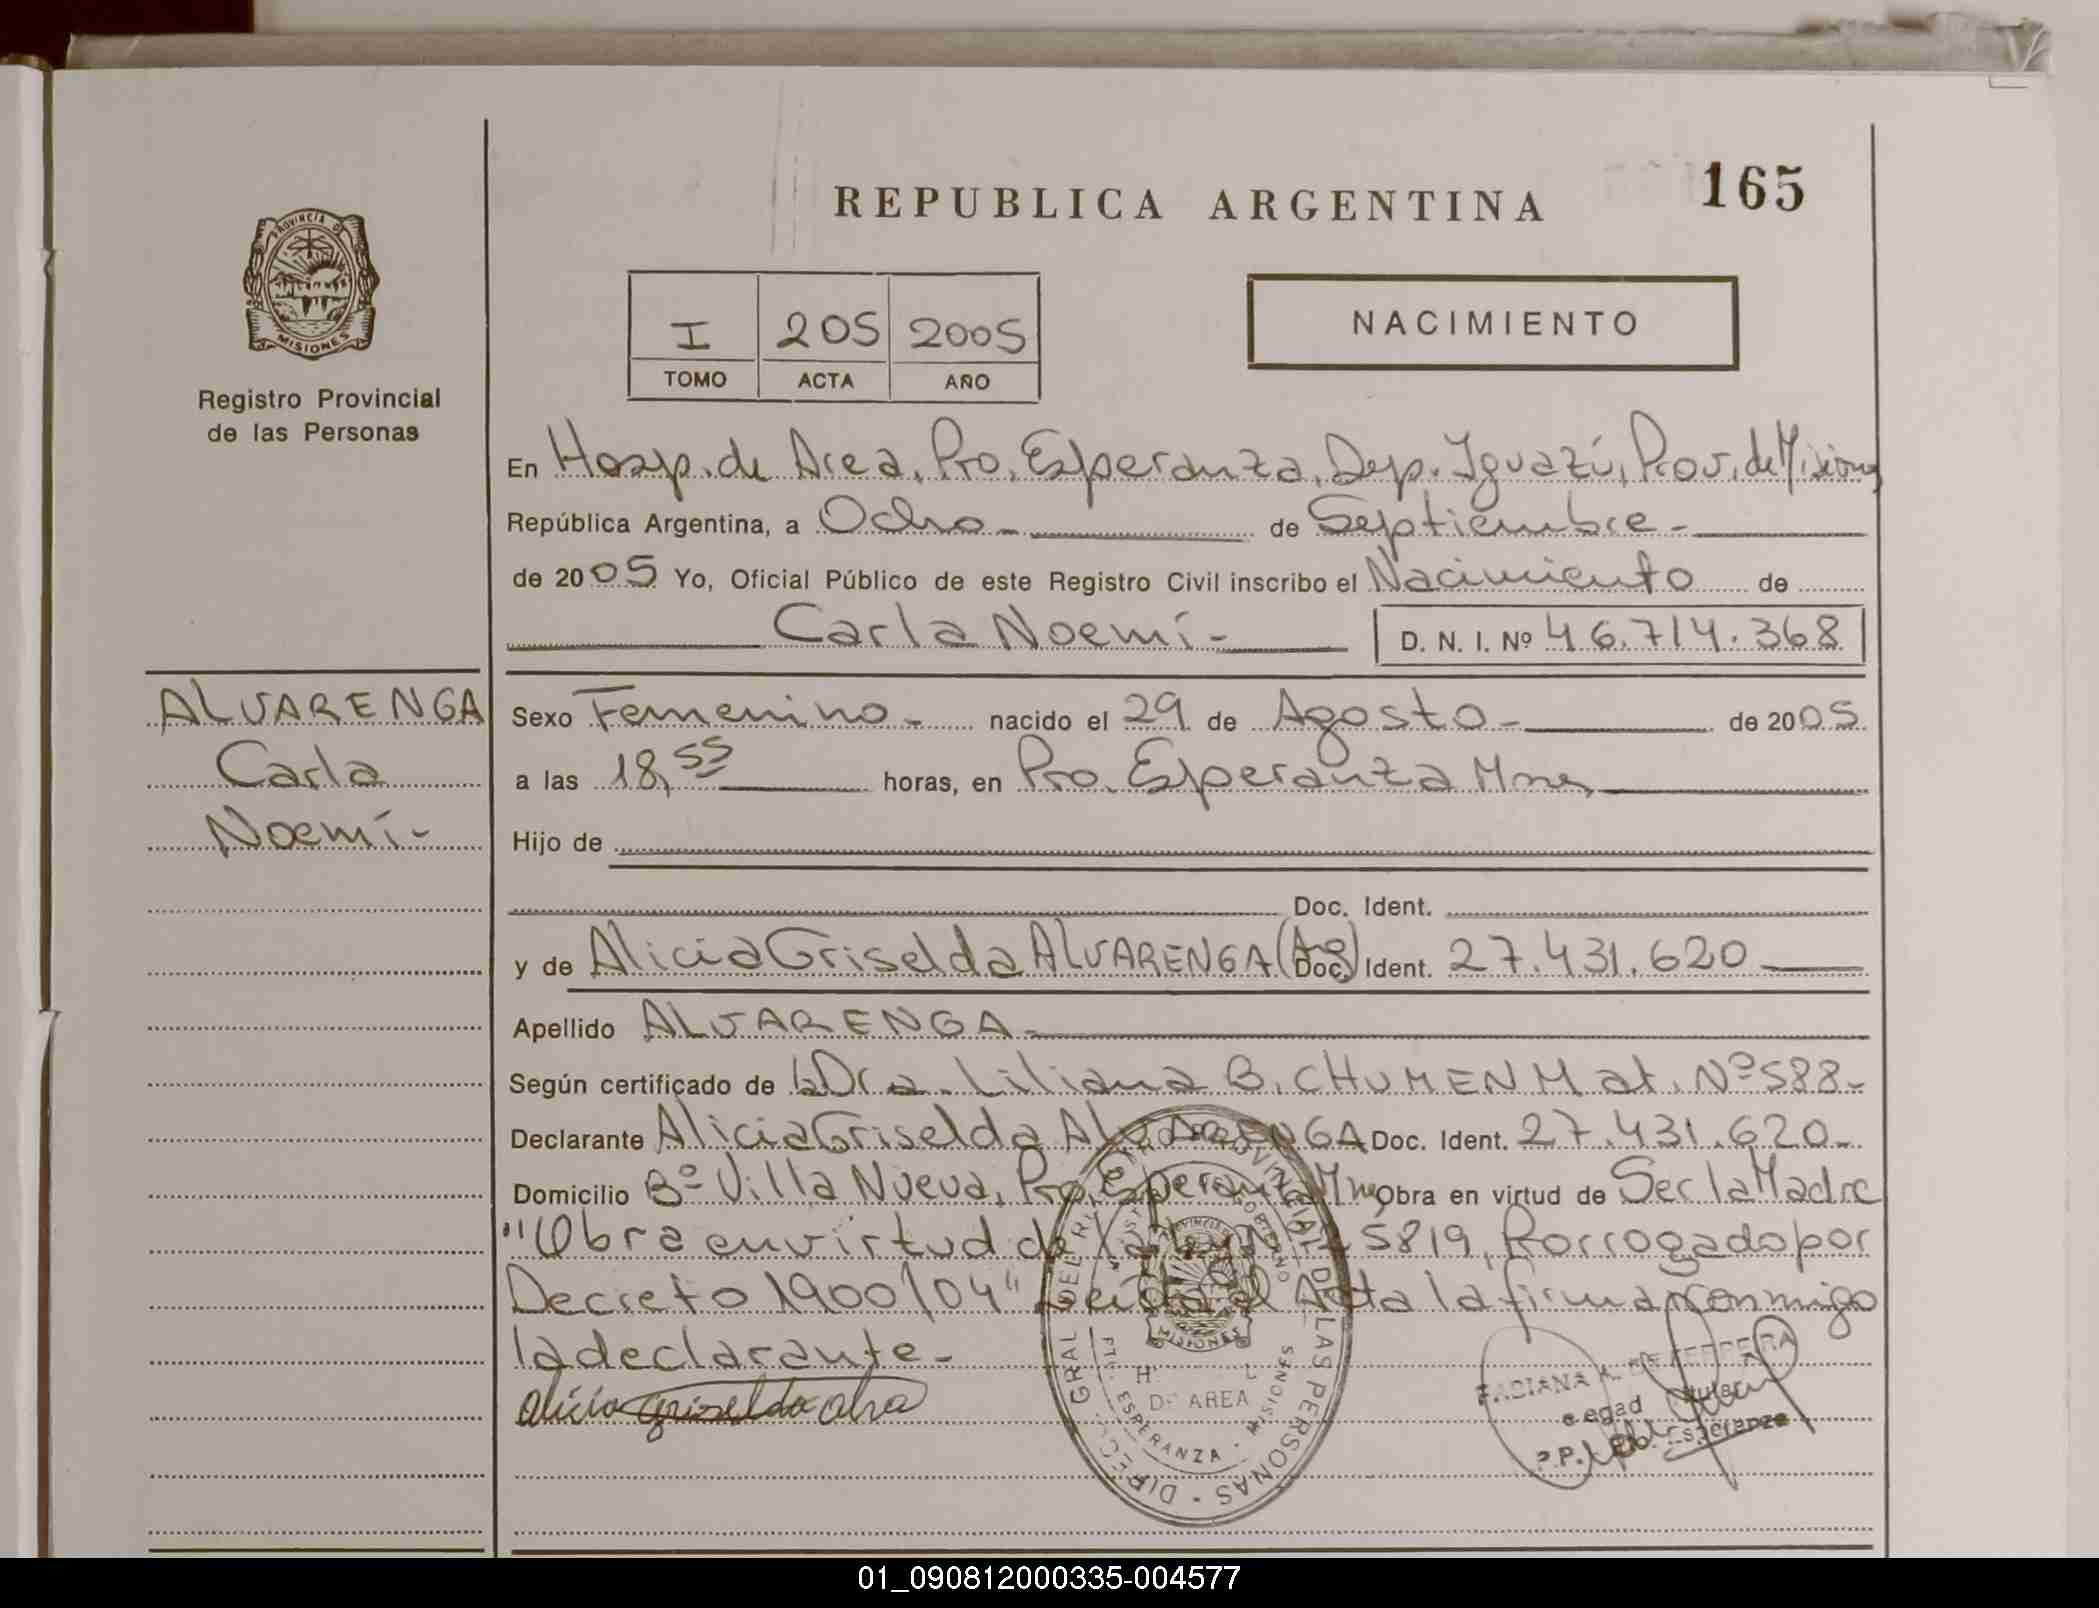 REPUBLICA ARGENTINA
165
PROVINCIA DE
MISIONES
Registro Provincial
de las Personas
I 205 2005
TOMO ACTA AÑO
NACIMIENTO
En Hosp. de Area, Pto. Esperanza, Dep. Iguazú, Prov. de Misiones
República Argentina, a Ocho - de Septiembre -
de 2005 Yo, Oficial Público de este Registro Civil inscribo el Nacimiento de
Carla Noemí - D. N. I. Nº 46.714.368
ALVARENGA
Carla
Noemí -
Sexo Femenino - nacido el 29 de Agosto - de 2005
a las 18,55 horas, en Pto. Esperanza Mnes
Hijo de
Doc. Ident.
y de Alicia Griselda ALVARENGA (Arg) Doc. Ident. 27.431.620
Apellido ALVARENGA -
Según certificado de la Dra. Liliana B. CHUMEN Mat. Nº 588 -
Declarante Alicia Griselda ALVARENGA Doc. Ident. 27.431.620 -
Domicilio Bº Villa Nueva, Pto. Esperanza Mnes Obra en virtud de Ser la Madre
"Obra en virtud de la Ley Nº 25819, Prorrogado por
Decreto 1900/04" Leída el Acta la firman conmigo
la declarante -
Alicia Griselda Alva
DIREC. GRAL DEL DE LAS PERSONAS
MISIONES
DE AREA
ESPERANZA - MISIONES
FABIANA A. DE FERREIRA
Esperanza
01_090812000335-004577